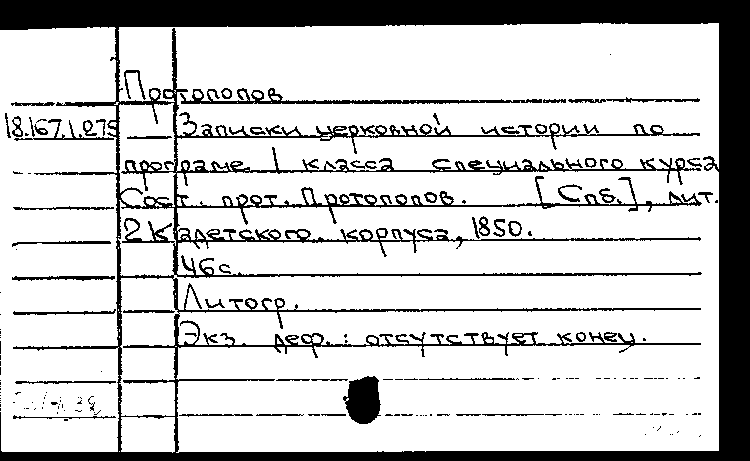 Протопопов
18.167.1.275 Записки церковной истории по
програме 1 класса специального курса
Сост. прот. Протопопов. [Спб.], лит.
2 Кадетского корпуса, 1850.
46с.
Литогр.
Экз. деф.: отсутствует конец.